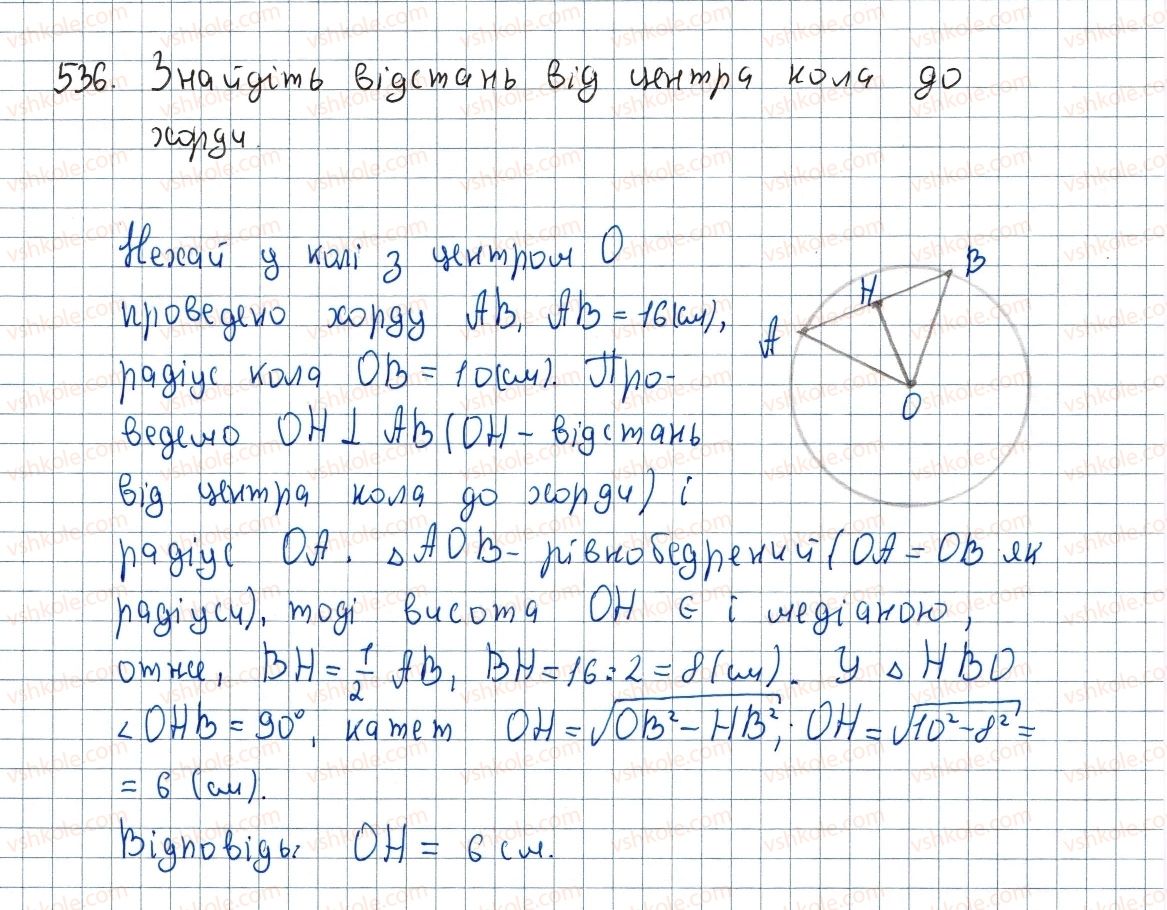 536. Знайдіть відстань від центра кола до
хорди.
Нехай у колі з центром О
проведено хорду АВ, АВ = 16(см),
радіус кола ОВ = 10(см). Про-
ведемо ОН ⊥ АВ (ОН – відстань
від центра кола до хорди) і
радіус ОА. △АОВ – рівнобедрений (ОА = ОВ як
радіуси), тоді висота ОН є і медіаною,
отже, ВН = 1/2 АВ, ВН = 16 : 2 = 8 (см). У △НВО
∠ОНВ = 90°, катет ОН = √(ОВ² – НВ²); ОН = √(10² – 8²) =
= 6 (см).
Відповідь: ОН = 6 см.
А
Н
В
О
vshkole.com